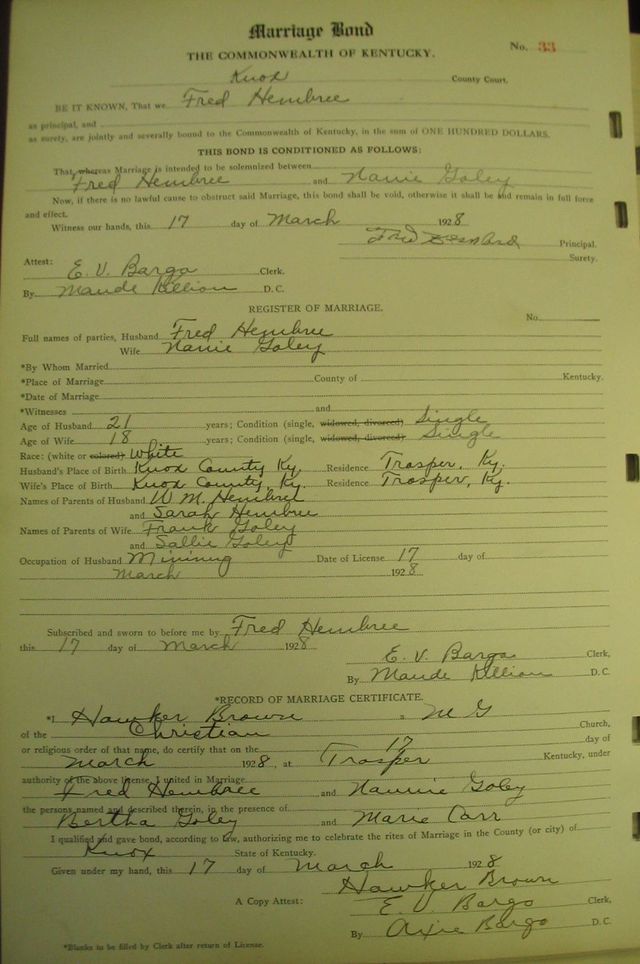 Marriage Bond
THE COMMONWEALTH OF KENTUCKY.
No. 33
Knox County Court.
BE IT KNOWN, That we Fred Hembree
as principal, and
as surety, are jointly and severally bound to the Commonwealth of Kentucky, in the sum of ONE HUNDRED DOLLARS.
THIS BOND IS CONDITIONED AS FOLLOWS:
That, whereas Marriage is intended to be solemnized between
Fred Hembree and Nanie Goley
Now, if there is no lawful cause to obstruct said Marriage, this bond shall be void, otherwise it shall be and remain in full force
and effect.
Witness our hands, this 17 day of March 1928
Fred Principal.
Surety.
Attest:
E. V. Bargo Clerk.
By Maude Killion D. C.
REGISTER OF MARRIAGE.
No.
Full names of parties, Husband Fred Hembree
Wife Nanie Goley
*By Whom Married
*Place of Marriage County of Kentucky.
*Date of Marriage
*Witnesses and
Age of Husband 21 years; Condition (single, widowed, divorced) Single
Age of Wife 18 years; Condition (single, widowed, divorced) Single
Race: (white or colored) White
Husband's Place of Birth Knox County Ky. Residence Trosper, Ky.
Wife's Place of Birth Knox County, Ky. Residence Trosper, Ky.
Names of Parents of Husband W M. Hembree
and Sarah Hembree
Names of Parents of Wife Frank Goley
and Sallie Goley
Occupation of Husband Minining Date of License 17 day of
March 1928
Subscribed and sworn to before me by Fred Hembree
this 17 day of March 1928
E. V. Bargo Clerk,
By Maude Killion D. C.
*RECORD OF MARRIAGE CERTIFICATE.
*I Hawker Brown a M G
of the Christian Church,
or religious order of that name, do certify that on the 17 day of
March 1928, at Trosper Kentucky, under
authority of the above license, I united in Marriage
Fred Hembree and Naunie Goley
the persons named and described therein, in the presence of
Bertha Goley and Marie Carr
I qualified and gave bond, according to law, authorizing me to celebrate the rites of Marriage in the County (or city) of
Knox State of Kentucky.
Given under my hand, this 17 day of March 1928
Hawker Brown
A Copy Attest: E V Bargo Clerk,
By Arxie Bargo D. C.
*Blanks to be filled by Clerk after return of License.